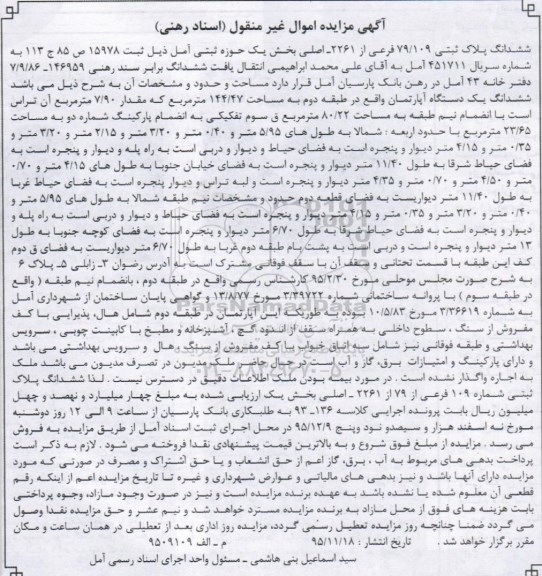 آگهی مزایده اموال غیر منقول (اسناد رهنی)
ششدانگ پلاک ثبتی ۷۹/۱۰۹ فرعی از ۲۲۶۱- اصلی بخش یک حوزه ثبتی آمل ذیل ثبت ۱۵۹۷۸ ص ۸۵ ج ۱۱۳ به
شماره سریال ۴۵۱۷۱۱ آمل به آقای علی محمد ابراهیمی انتقال یافت ششدانگ برابر سند رهنی ۱۴۶۹۵۹- ۷/۹/۸۶
دفتر خانه ۴۳ آمل در رهن بانک پارسیان آمل قرار دارد مساحت و حدود و مشخصات آن به شرح ذیل می باشد
ششدانگ یک دستگاه آپارتمان واقع در طبقه دوم به مساحت ۱۴۴/۴۷ مترمربع که مقدار ۷/۹۰ مترمربع آن تراس
است با انضمام نیم طبقه به مساحت ۸۰/۲۲ مترمربع ق سوم تفکیکی به انضمام پارکینگ شماره دو به مساحت
۲۳/۶۵ مترمربع با حدود اربعه : شمالا به طول های ۵/۹۵ متر و ۰/۴۰ متر و ۳/۲۰ متر و ۲/۱۵ متر و ۳/۲۰ متر و
۰/۳۵ متر و ۴/۱۵ متر دیوار و پنجره است به فضای حیاط و دیوار و دربی است به راه پله و دیوار و پنجره است به
فضای حیاط شرقا به طول ۱۱/۴۰ متر دیوار و پنجره است به فضای خیابان جنوبا به طول های ۴/۱۵ متر و ۰/۷۰
متر و ۴/۵۰ متر و ۰/۷۰ متر و ۴/۳۵ متر دیوار و پنجره است و لبه تراس و دیوار پنجره است به فضای حیاط غربا
به طول ۱۱/۴۰ متر دیواریست به فضای قطعه و حدود و مشخصات نیم طبقه شمالا به طول های ۵/۹۵ متر و
۰/۴۰ متر و ۳/۲۰ متر و ۰/۳۵ متر و ۴/۱۵ متر دیوار و پنجره است به فضای حیاط و دیوار و دربی است به راه پله و
دیوار و پنجره است به فضای حیاط شرقا به طول ۶/۷۰ متر دیوار و پنجره است به فضای کوچه جنوبا به طول
۱۳ متر دیوار و پنجره است و دربی است به پشت بام طبقه دوم غربا به طول ۶/۷۰ متر دیواریست به فضای ق دوم
کف این طبقه با قسمت تحتانی و سقف آن با سقف فوقانی مشترک است به آدرس رضوان ۳- زابلی ۵- پلاک ۶
به شرح صورت مجلس موحلی مورخ ۹۵/۲/۳۰ کارشناس رسمی واقع در طبقه دوم ، بانضمام نیم طبقه ( واقع
در طبقه سوم ) با پروانه ساختمانی به شماره ۳/۳۹۷۲۲ مورخ ۱۳/۸۷۷ و گواهی پایان ساختمان از شهرداری آمل
به شماره ۳/۳۶۶۱۹ مورخ ۱۰/۵/۸۳ نبوده به طوریکه این آپارتمان در طبقه دوم شامل هال، پذیرایی با کف
مفروش از سنگ ، سطوح داخلی به همراه سقف از اندود گچ ، آشپزخانه و مطبخ با کابینت چوبی ، سرویس
بهداشتی و طبقه فوقانی نیز شامل سه اتاق خواب با کف مفروش از سنگ ، هال و سرویس بهداشتی می باشد
و دارای پارکینگ و امتیازات برق، گاز و آب است در حال حاضر ملک مدیون در تصرف مدیون می باشد ملک
به اجاره واگذار نشده است . در مورد بیمه بودن ملک اطلاعات دقیق در دسترس نیست . لذا ششدانگ پلاک
ثبتی شماره ۱۰۹ فرعی از ۷۹ از ۲۲۶۱ - اصلی بخش یک ارزیابی شده به مبلغ چهار میلیارد و نهصد و چهل
میلیون ریال بابت پرونده اجرایی کلاسه ۱۳۶- ۹۳ به طلبکاری بانک پارسیان از ساعت ۹ الی ۱۲ روز دوشنبه
مورخ نه اسفند هزار و سیصدو نود وپنج ۹۵/۱۲/۹ در محل اجرای ثبت اسناد آمل از طریق مزایده به فروش
می رسد . مزایده از مبلغ فوق شروع و به بالاترین قیمت پیشنهادی نقدا فروخته می شود . لازم به ذکر است
پرداخت بدهی های مربوط به آب ، برق، گاز اعم از حق انشعاب و یا حق اشتراک و مصرف در صورتی که مورد
مزایده دارای آنها باشد و نیز بدهی های مالیاتی و عوارض شهرداری و غیره تا تاریخ مزایده اعم از اینکه رقم
قطعی آن معلوم شده یا نشده باشد به عهده برنده مزایده است و نیز در صورت وجود مازاد، وجوه پرداختی
بابت هزینه های فوق از محل مازاد به برنده مزایده مسترد خواهد شد و نیم عشر و حق مزایده نقدا وصول
می گردد ضمنا چنانچه روز مزایده تعطیل رسمی گردد، مزایده روز اداری بعد از تعطیلی در همان ساعت و مکان
مقرر برگزار خواهد شد . تاریخ انتشار : ۹۵/۱۱/۱۸ م - الف ۹۵۰۹۱۰۹
سید اسماعیل بنی هاشمی - مسئول واحد اجرای اسناد رسمی آمل